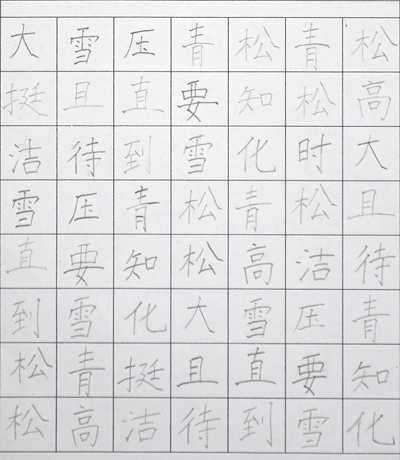 大雪压青松青松
挺且直要知松高
洁待到雪化时大
雪压青松青松且
直要知松高洁待
到雪化大雪压青
松青挺且直要知
松高洁待到雪化